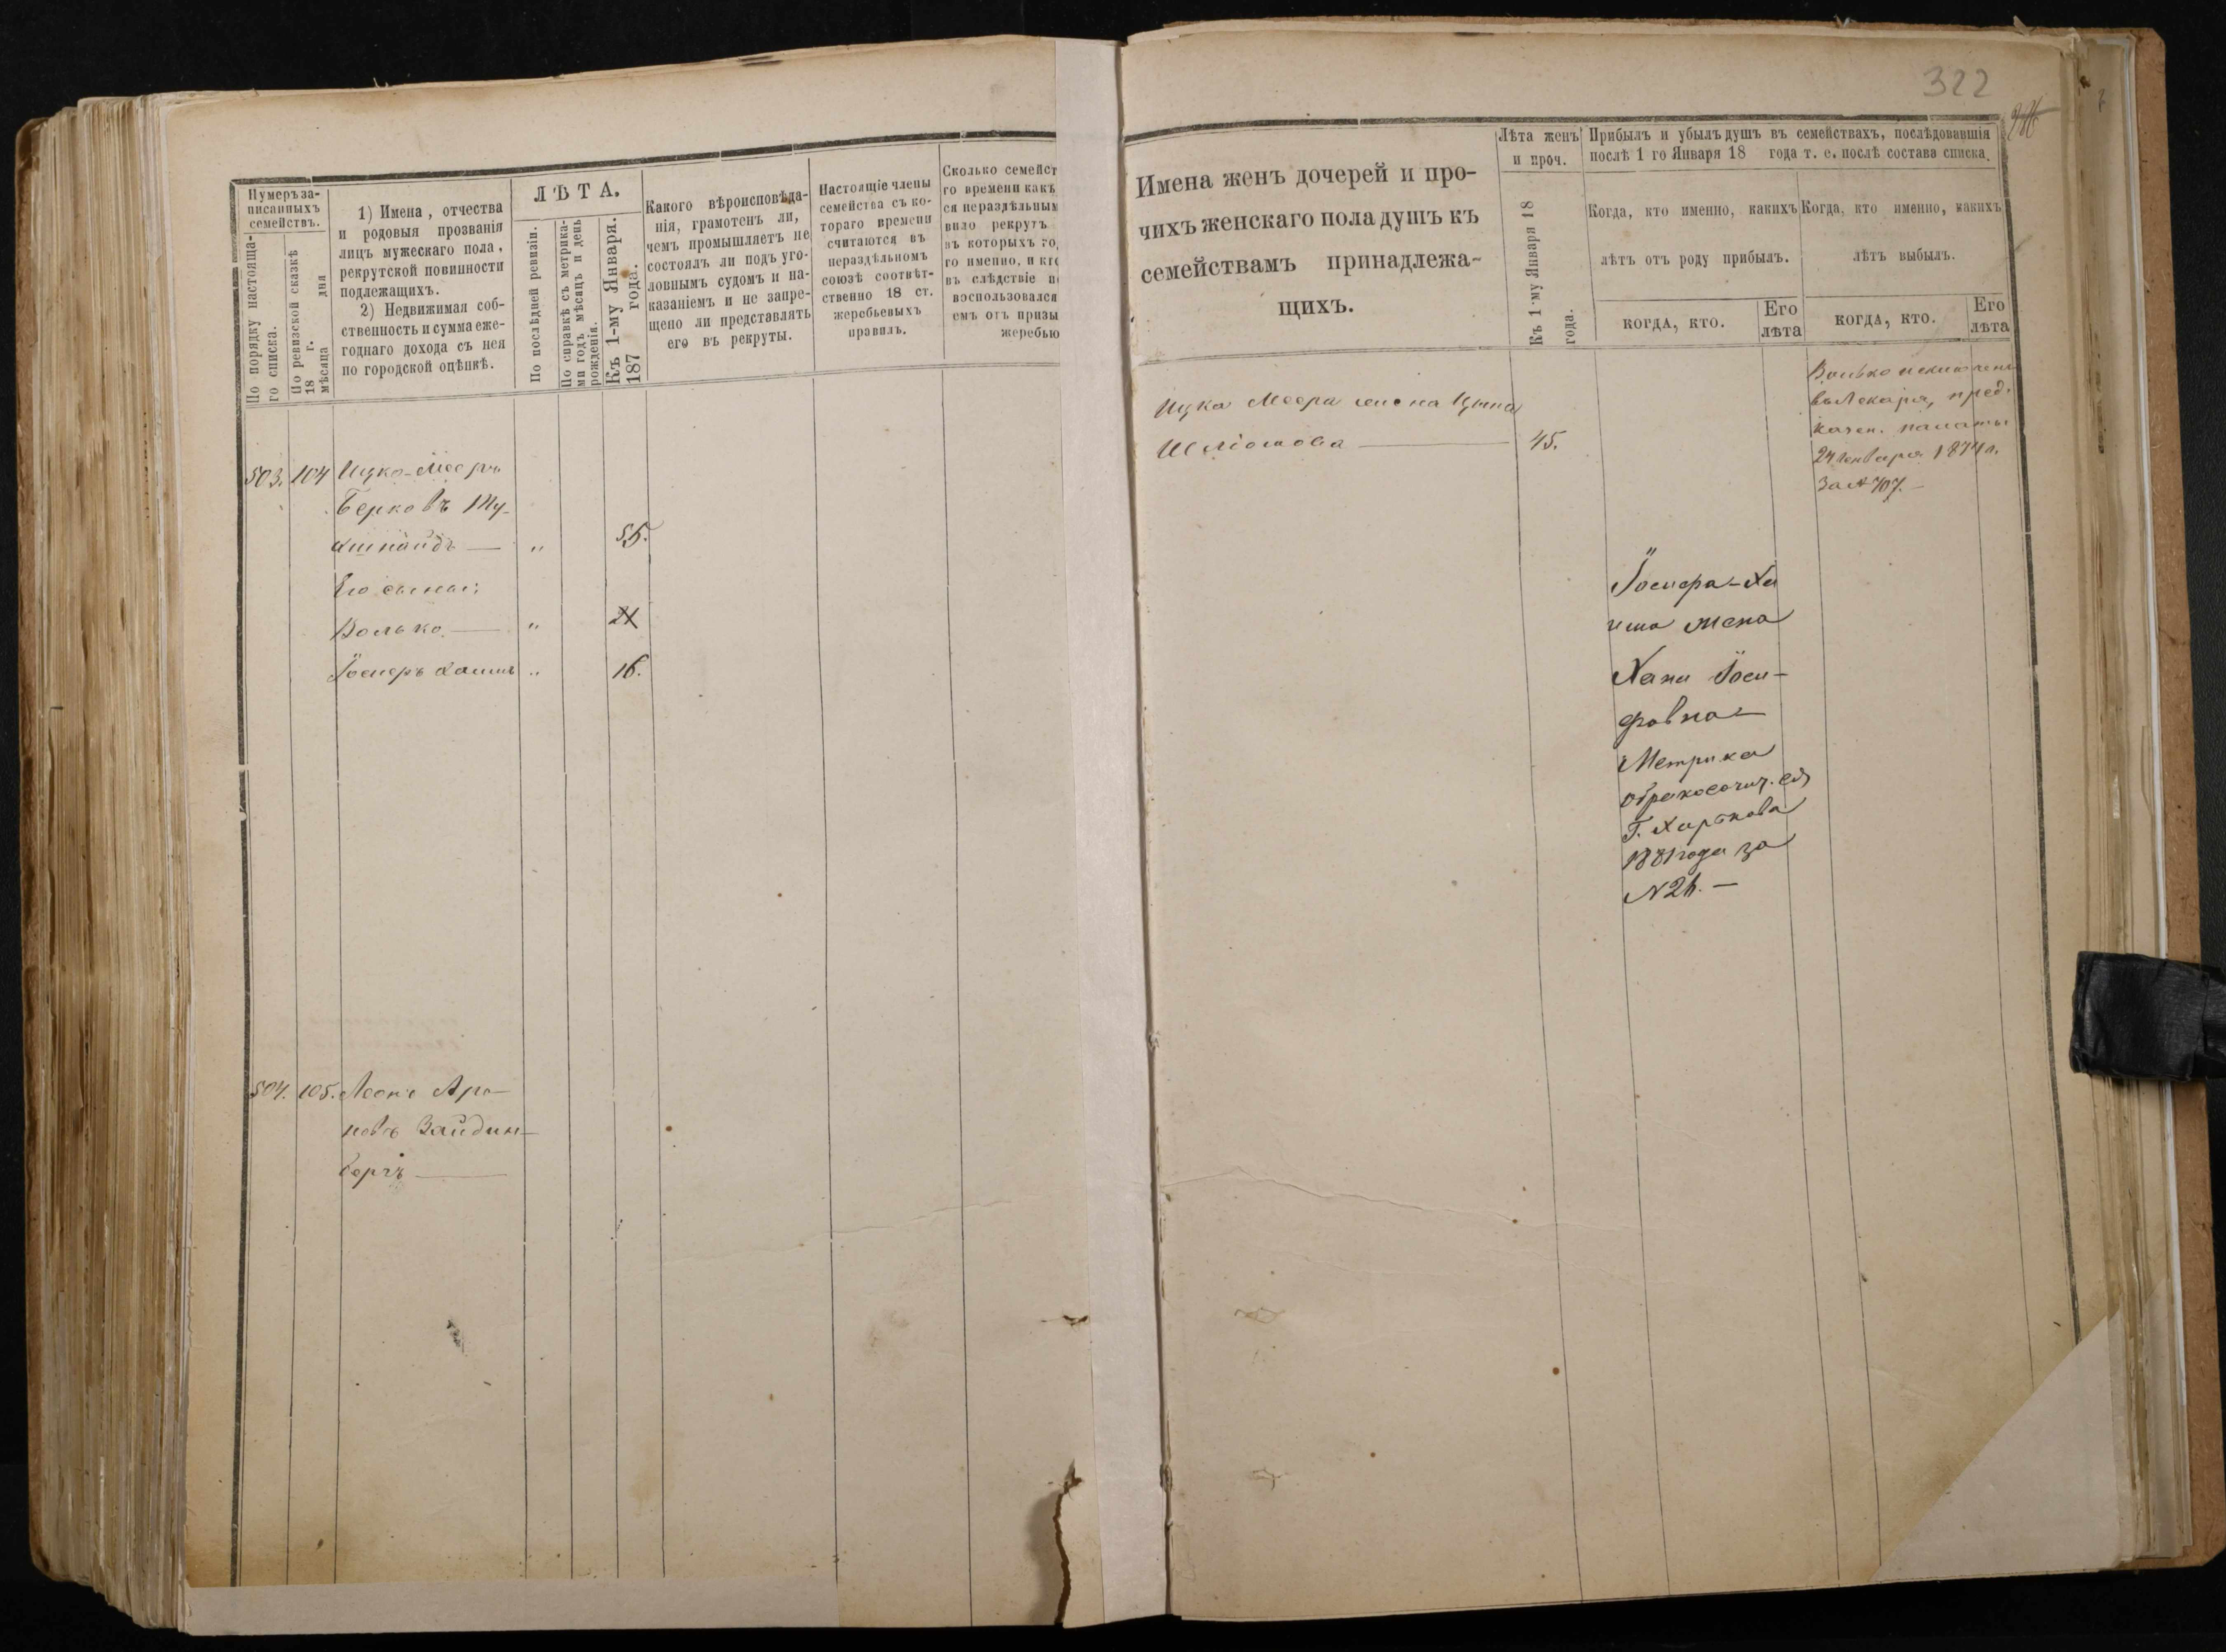 Нумеръ за-
писанныхъ
семействъ.
По порядку настояща-
го списка.
По ревизской сказкѣ
18 г.
мѣсяца дня
1) Имена, отчества
и родовыя прозванія
лицъ мужескаго пола,
рекрутской повинности
подлежащихъ.
2) Недвижимая соб-
ственность и сумма еже-
годнаго дохода съ нея
по городской оцѣнкѣ.
ЛѢТА.
По послѣдней ревизіи.
По справкѣ съ метрика-
ми годъ мѣсяцъ и день
рожденія.
Къ 1-му Января.
187 года.
Какого вѣроисповѣда-
нія, грамотенъ ли,
чемъ промышляетъ не
состоялъ ли подъ уго-
ловнымъ судомъ и на-
казаніемъ и не запре-
щено ли представлять
его въ рекруты.
Настоящіе члены
семейства съ ко-
тораго времени
считаются въ
нераздѣльномъ
союзѣ соотвѣт-
ственно 18 ст.
жеребьевыхъ
правилъ.
Сколько семейст
го времени какъ
ся нераздѣльным
вило рекрутъ
въ которыхъ го
го именно, и кто
въ слѣдствіе
воспользовался
емъ отъ призы
жеребью
503. 104 Ицко-Мееръ
Берковъ
" 55.
Его сыновья:
Волько — " 21
Іосперъ Хаимъ " 16.
504. 105. Леонъ Аро-
новъ Зайдин-
бергъ —
322
Имена женъ дочерей и про-
чихъ женскаго пола душъ къ
семействамъ принадлежа-
щихъ.
Лѣта женъ
и проч.
Къ 1-му Января 18
года.
Прибылъ и убылъ душъ въ семействахъ, послѣдовавшія
послѣ 1 го Января 18 года т. е. послѣ состава списка.
Когда, кто именно, какихъ
лѣтъ отъ роду прибылъ.
Когда, кто именно, какихъ
лѣтъ выбылъ.
КОГДА, КТО.
Его
лѣта
КОГДА, КТО.
Его
лѣта
Ицка Меера жена
— 45.
Волько исключенъ
въ Лекаря, пред.
казен. палаты
24 Января 1874 г.
За № 707. —
Іосифа-Ха
има жена
Хана Іоси-
фовна —
Метрика
о бракосочет.
Г. Харькова
1881 года за
N 26. —